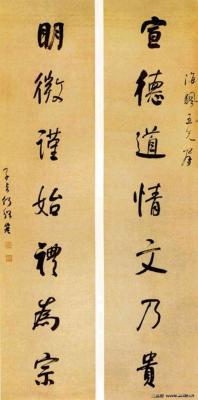 宣德道情文乃貴
明微謹始禮為宗
子貞何紹基